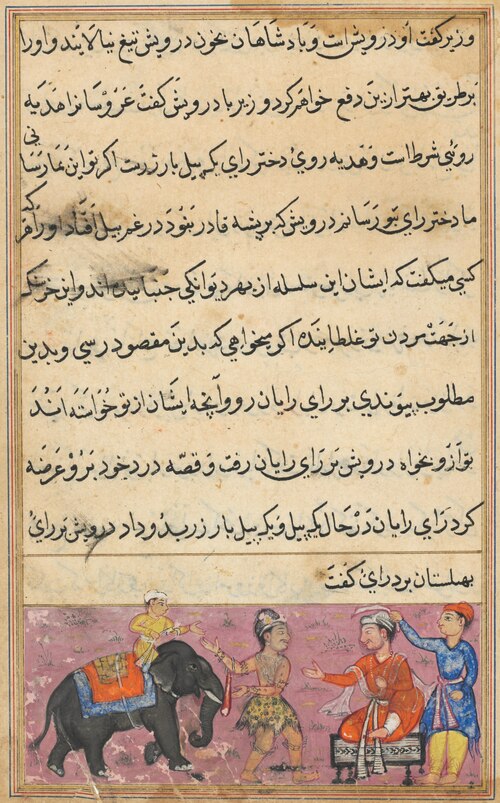 وزیر گفت او درویش است و پادشاهان بخون درویش تیغ نیالایند و او را
بر طریق بهتر ازین دفع خواهم کرد وزیر با درویش گفت عروسانرا هدیه
روئی شرط است و هدیه روی دختر رای یک پیل بار زرست اگر تو این بما رسانی
ما دختر رای بتو رسانم درویش که بر پشه قادر نبود در غم پیل افتاد و او را هر که
کسی میگفت که ایشان این سلسله از بهر دیوانگی جنبانیده اند و این خرسنگ
از جهت مردن تو غلطانیده اگر میخواهی که بدین مقصود رسی و بدین
مطلوب پیوندی بر رای رایان رو و آنچه ایشان از تو خواسته اند
تو ازو بخواه درویش بر رای رایان رفت و قصه درد خود برو عرضه
کرد رای رایان در حال یک پیل و یک پیل بار زر بدو داد درویش بر رای
بهلستان برد رای گفت